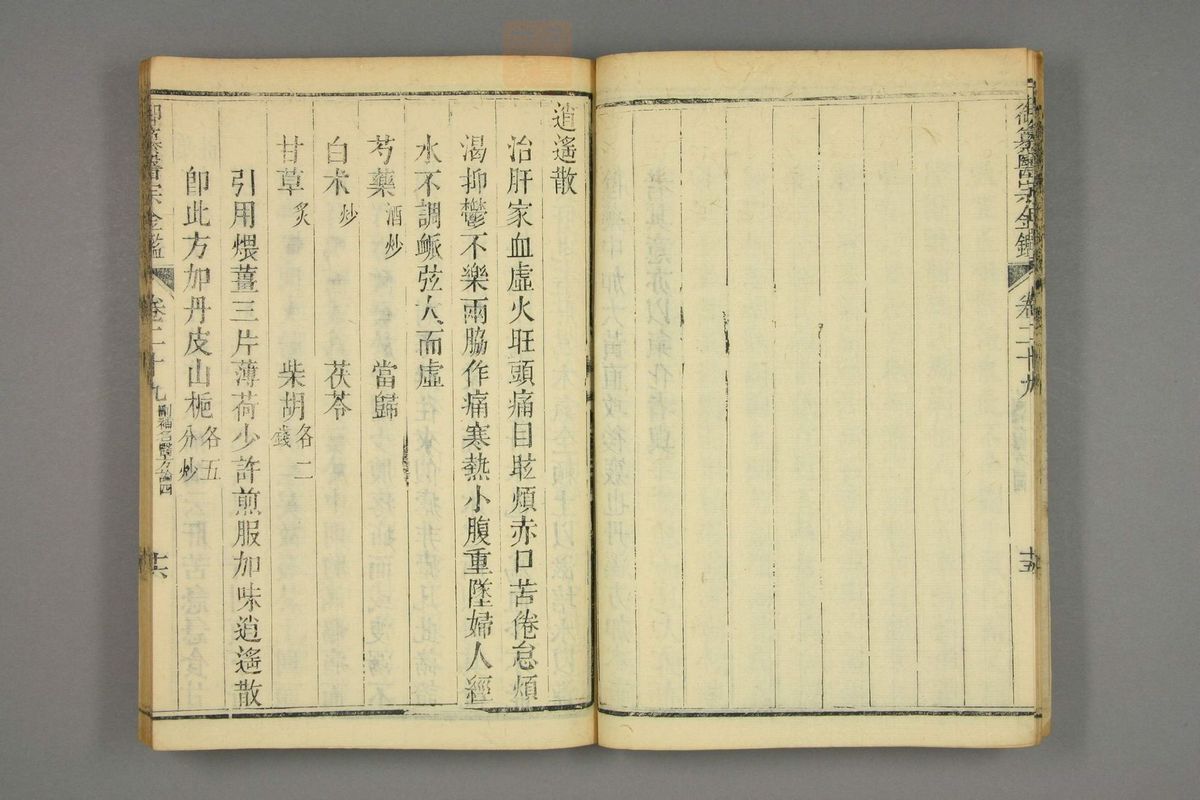 御纂醫宗金鑑 卷二十九 十五
逍遙散
治肝家血虛火旺頭痛目眩煩赤口苦倦怠煩
渴抑鬱不樂兩脇作痛寒熱小腹重墜婦人經
水不調脈弦大而虛
芍藥 酒炒 當歸
白朮 炒 茯苓
甘草 炙 柴胡 各二錢
引用煨薑三片薄荷少許煎服加味逍遙散
卽此方加丹皮山梔 各五分炒
御纂醫宗金鑑 卷二十九 刪補名醫方論四 十六